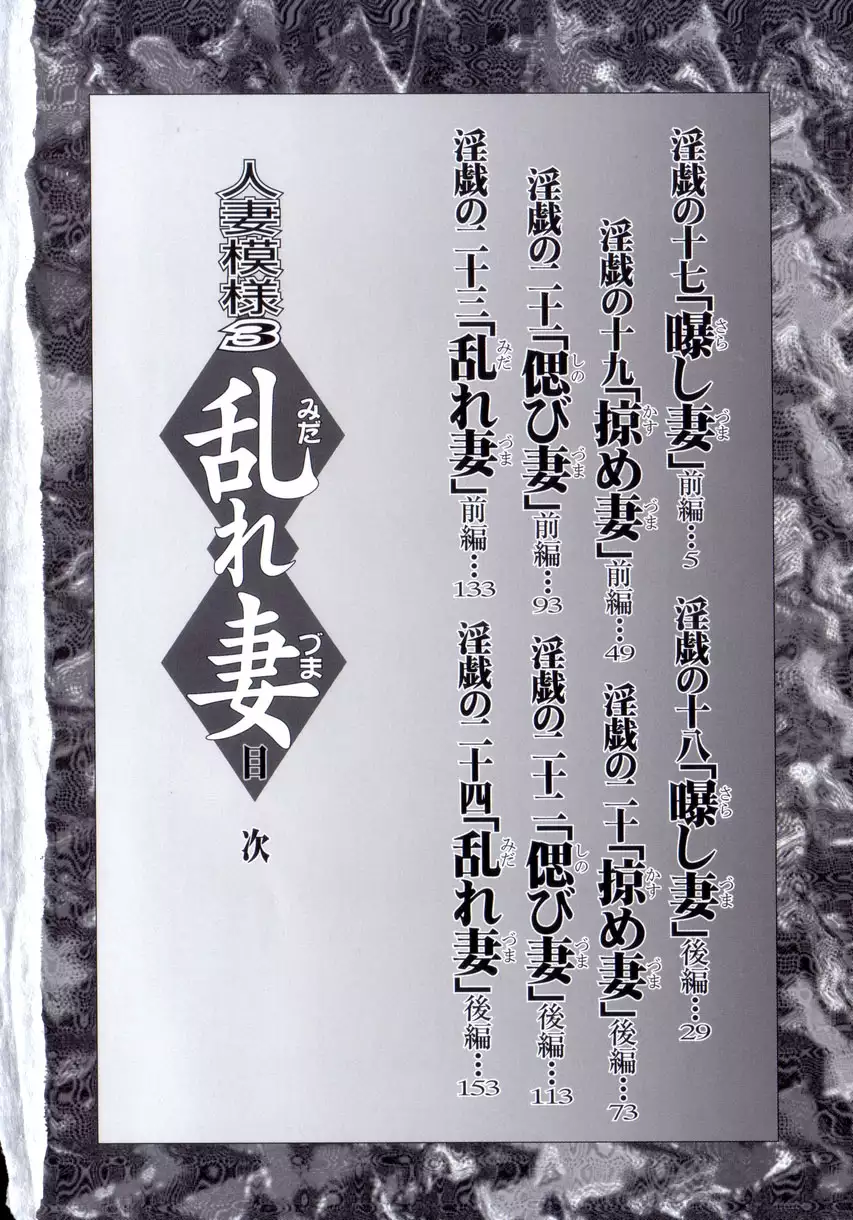 淫戯の十七「曝し妻」前編…5
淫戯の十八「曝し妻」後編…29
淫戯の十九「掠め妻」前編…49
淫戯の二十「掠め妻」後編…73
淫戯の二十一「偲び妻」前編…93
淫戯の二十二「偲び妻」後編…113
淫戯の二十三「乱れ妻」前編…133
淫戯の二十四「乱れ妻」後編…153
人妻模様3
乱れ妻
目次